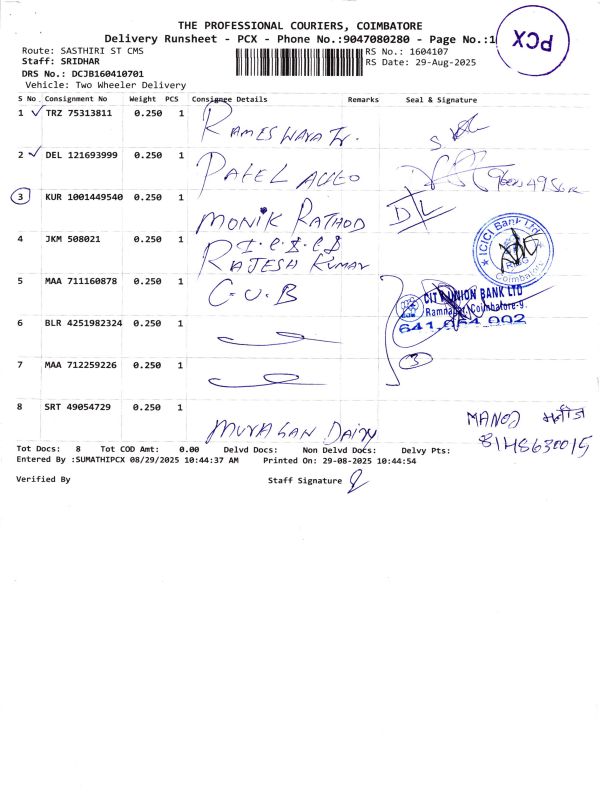 THE PROFESSIONAL COURIERS, COIMBATORE
Delivery Runsheet - PCX - Phone No.:9047080280 - Page No.:1
PCX
Route: SASTHIRI ST CMS
RS No.: 1604107
Staff: SRIDHAR
RS Date: 29-Aug-2025
DRS No.: DCJB160410701
Vehicle: Two Wheeler Delivery
S No. Consignment No Weight PCS Consignee Details Remarks Seal & Signature
1 TRZ 75313811 0.250 1 RAMESWARA Tr.
2 DEL 121693999 0.250 1 PATEL AUTO
3 KUR 1001449540 0.250 1 MONIK RATHOD D/L
4 JKM 508021 0.250 1 I.C.I.C.I
RAJESH KUMAR
ICICI Bank Ltd
Coimbatore
5 MAA 711160878 0.250 1 C.U.B
CITY UNION BANK LTD
Ramnagar, Coimbatore-9.
641.064.002
6 BLR 4251982324 0.250 1
7 MAA 712259226 0.250 1
3
8 SRT 49054729 0.250 1 MURAGAN DAIRY
MANOJ
8148630015
Tot Docs: 8 Tot COD Amt: 0.00 Delvd Docs: Non Delvd Docs: Delvy Pts:
Entered By :SUMATHIPCX 08/29/2025 10:44:37 AM Printed On: 29-08-2025 10:44:54
Verified By Staff Signature